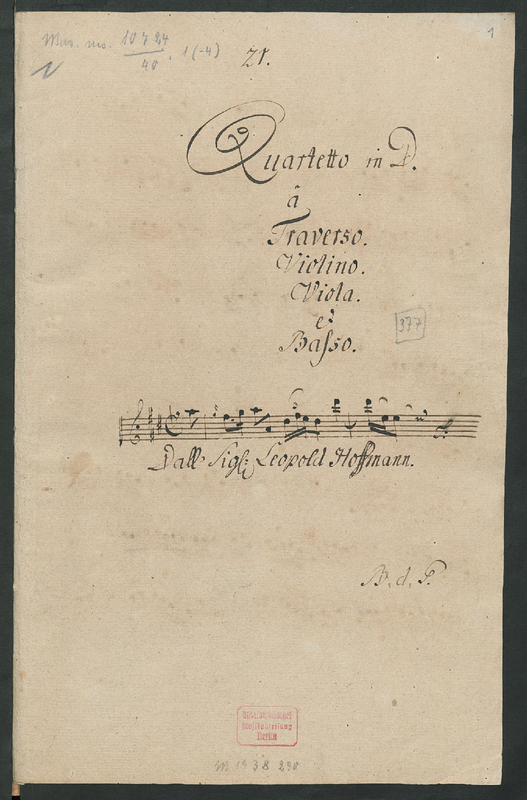 Mus. ms. 10724
40, 1(-4)
1
21.
Quartetto in D.
â
Traverso.
Violino.
Viola.
e
377
Basso.
Dall Sigl: Leopold Hoffmann.
B. d. P.
Berlin
M 1938 290